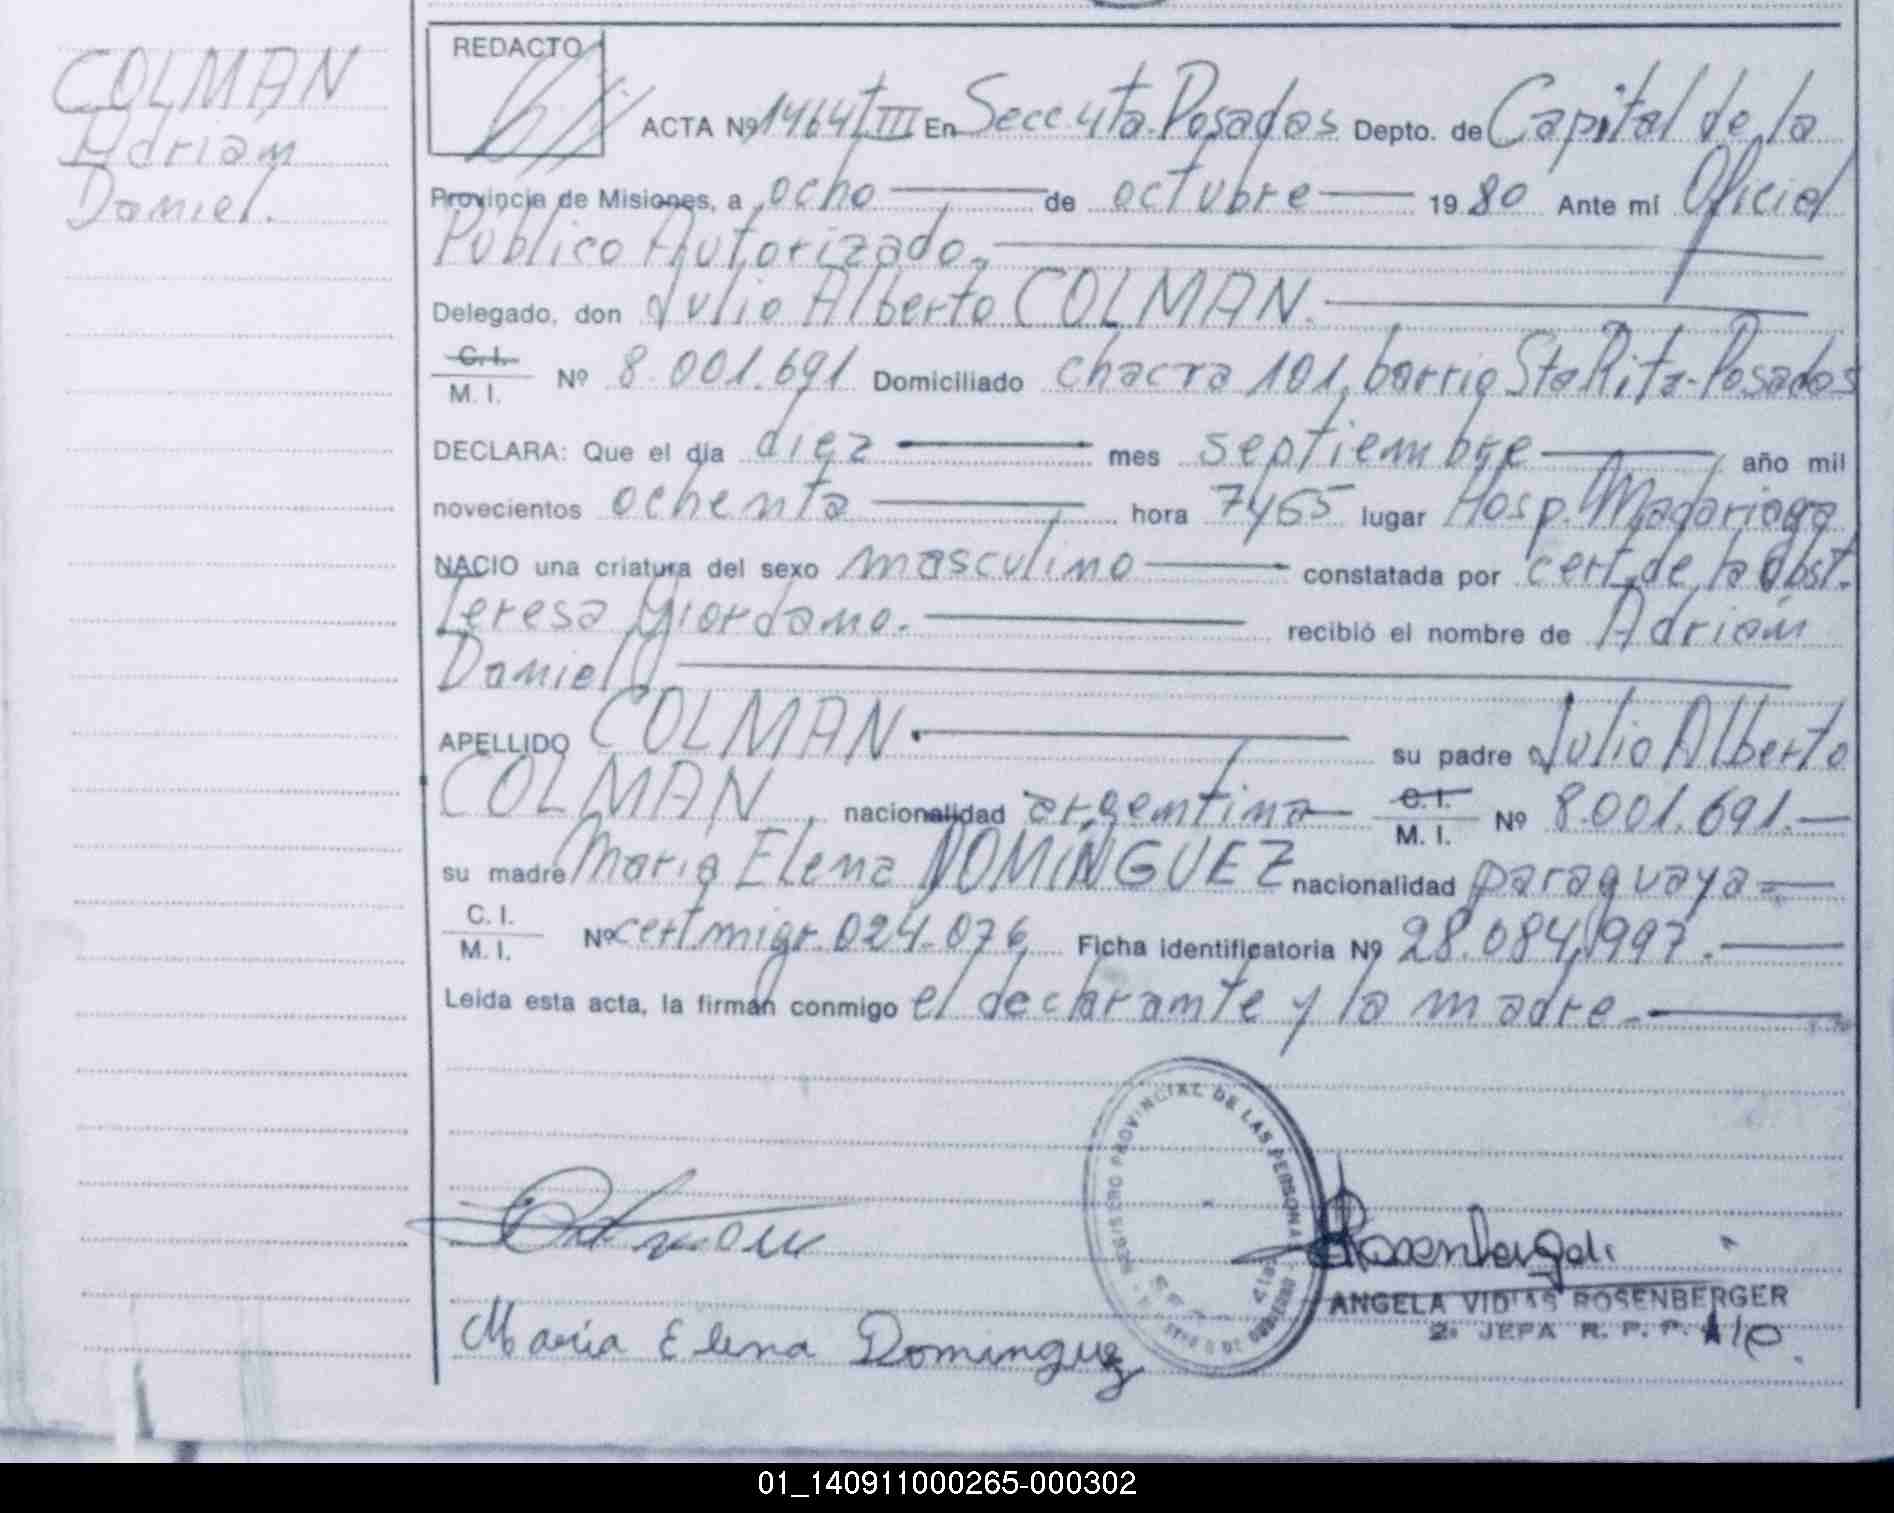 COLMAN
Adrian
Daniel.
REDACTO
ACTA Nº 1464 T III En Secc 4ta. Posadas Depto. de Capital de la
Provincia de Misiones, a ocho de octubre 19 80 Ante mí Oficial
Público Autorizado.
Delegado, don Julio Alberto COLMAN.
C. I.
M. I. Nº 8.001.691 Domiciliado chacra 101, barrio Sta Rita - Posadas
DECLARA: Que el día diez mes septiembre año mil
novecientos ochenta hora lugar Hosp. Madariaga
NACIO una criatura del sexo masculino constatada por cert. de la Obst.
Teresa Giordano. recibió el nombre de Adrián
Daniel
APELLIDO COLMAN. su padre Julio Alberto
COLMAN, nacionalidad argentina C. I.
M. I. Nº 8.001.691.
su madre María Elena DOMÍNGUEZ nacionalidad paraguaya
C. I.
M. I. Nº cert migr. 024.076 Ficha identificatoria Nº 28.084.997.
Leída esta acta, la firman conmigo el declarante y la madre.
REGISTRO PROVINCIAL DE LAS PERSONAS
María Elena Dominguez
ANGELA ROSENBERGER
2º JEFA R. P. P.
01_140911000265-000302